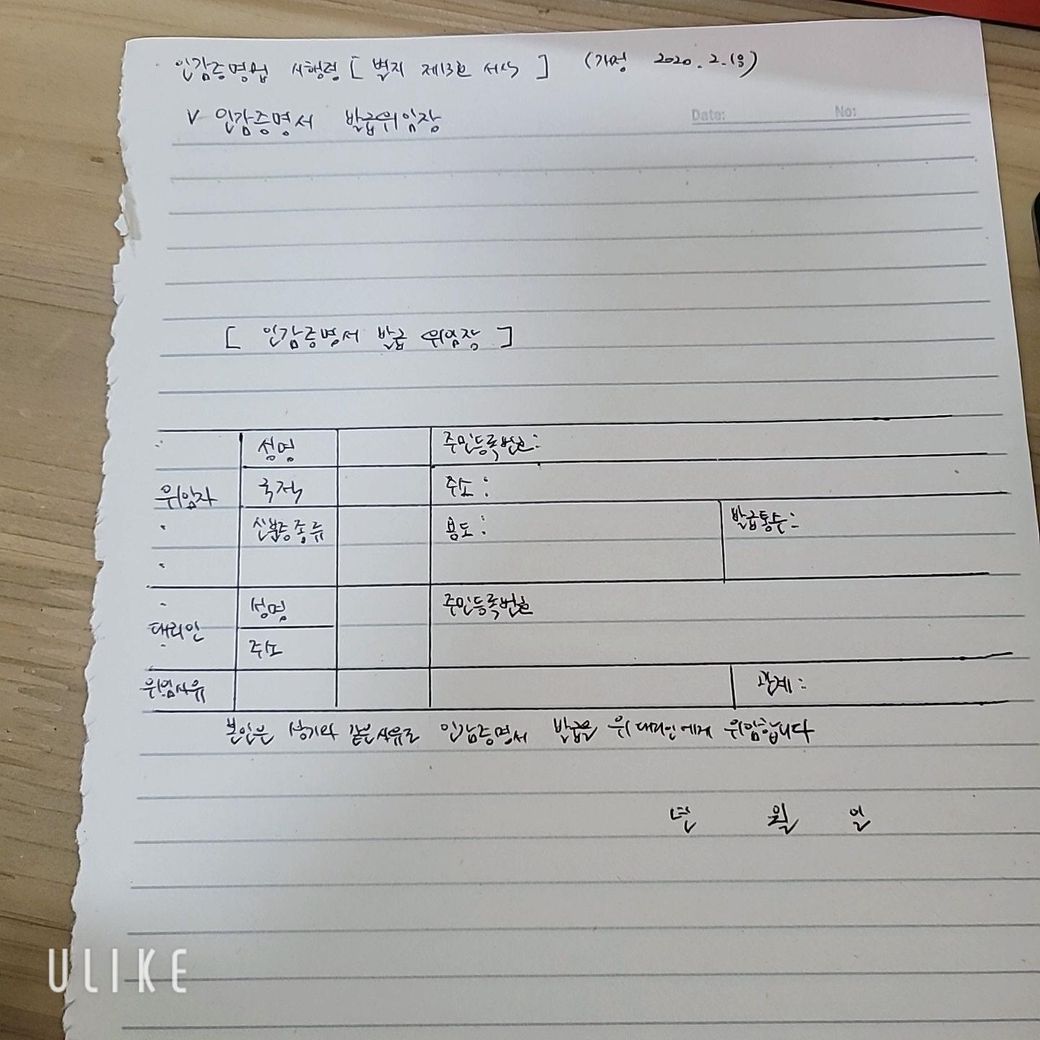 인감증명법 시행령 [ 별지 제13호 서식 ] (개정 2020. 2. 18)
V 인감증명서 발급위임장
Date: No:
[ 인감증명서 발급 위임장 ]
성명 주민등록번호:
위임자 국적 주소 :
신분증종류 용도 : 발급통수:
성명 주민등록번호
대리인
주소
위임사유 관계 :
본인은 상기와 같은사유로 인감증명서 발급을 위 대리인에게 위임합니다
년 월 일
ULIKE